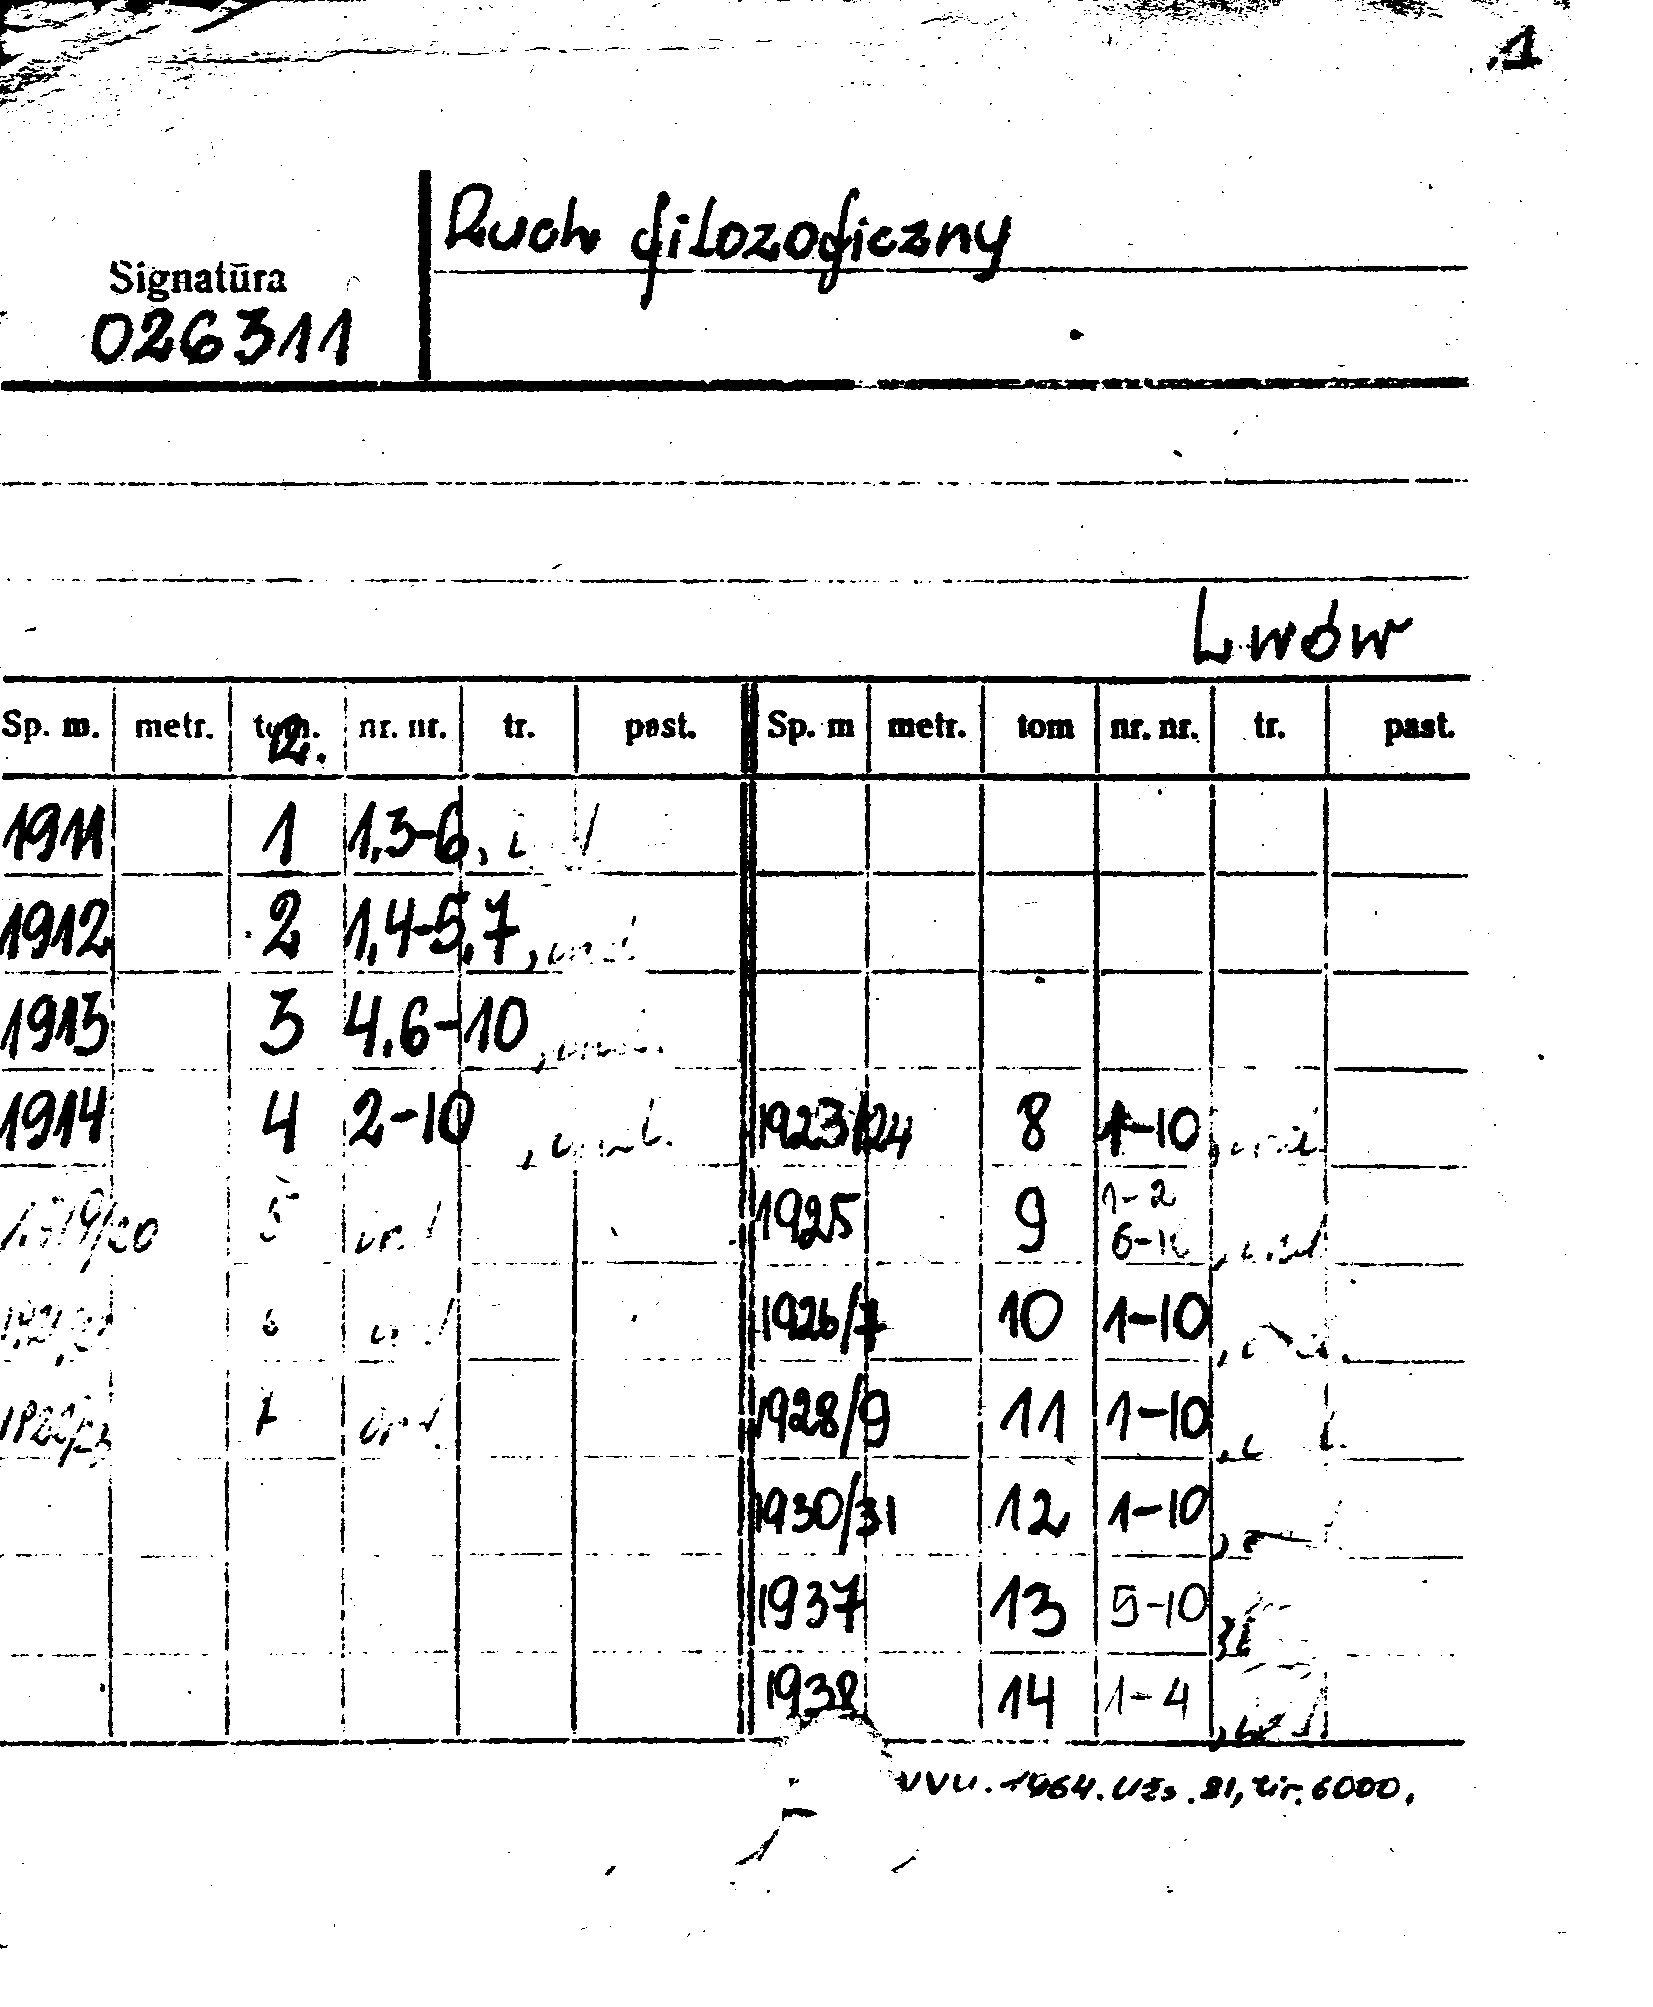 1
Ruch filozoficzny
Signatūra
026311
Lwów
Sp. m. metr. tom. nr. nr. tr. past. Sp. m metr. tom nr. nr. tr. past.
R.
1911 1 1,3-6,
1912 2 1,4-5,7,
1913 3 4,6-10,
1914 4 2-10, 1923/24 8 1-10,
1919/20 5 1925 9 1-2
6-10,
6 1926/7 10 1-10,
1922/23 7 1928/9 11 1-10,
1930/31 12 1-10,
1937 13 5-10,
1938 14 1-4,
VVU. 1964. Užs. 81, tir. 6000.